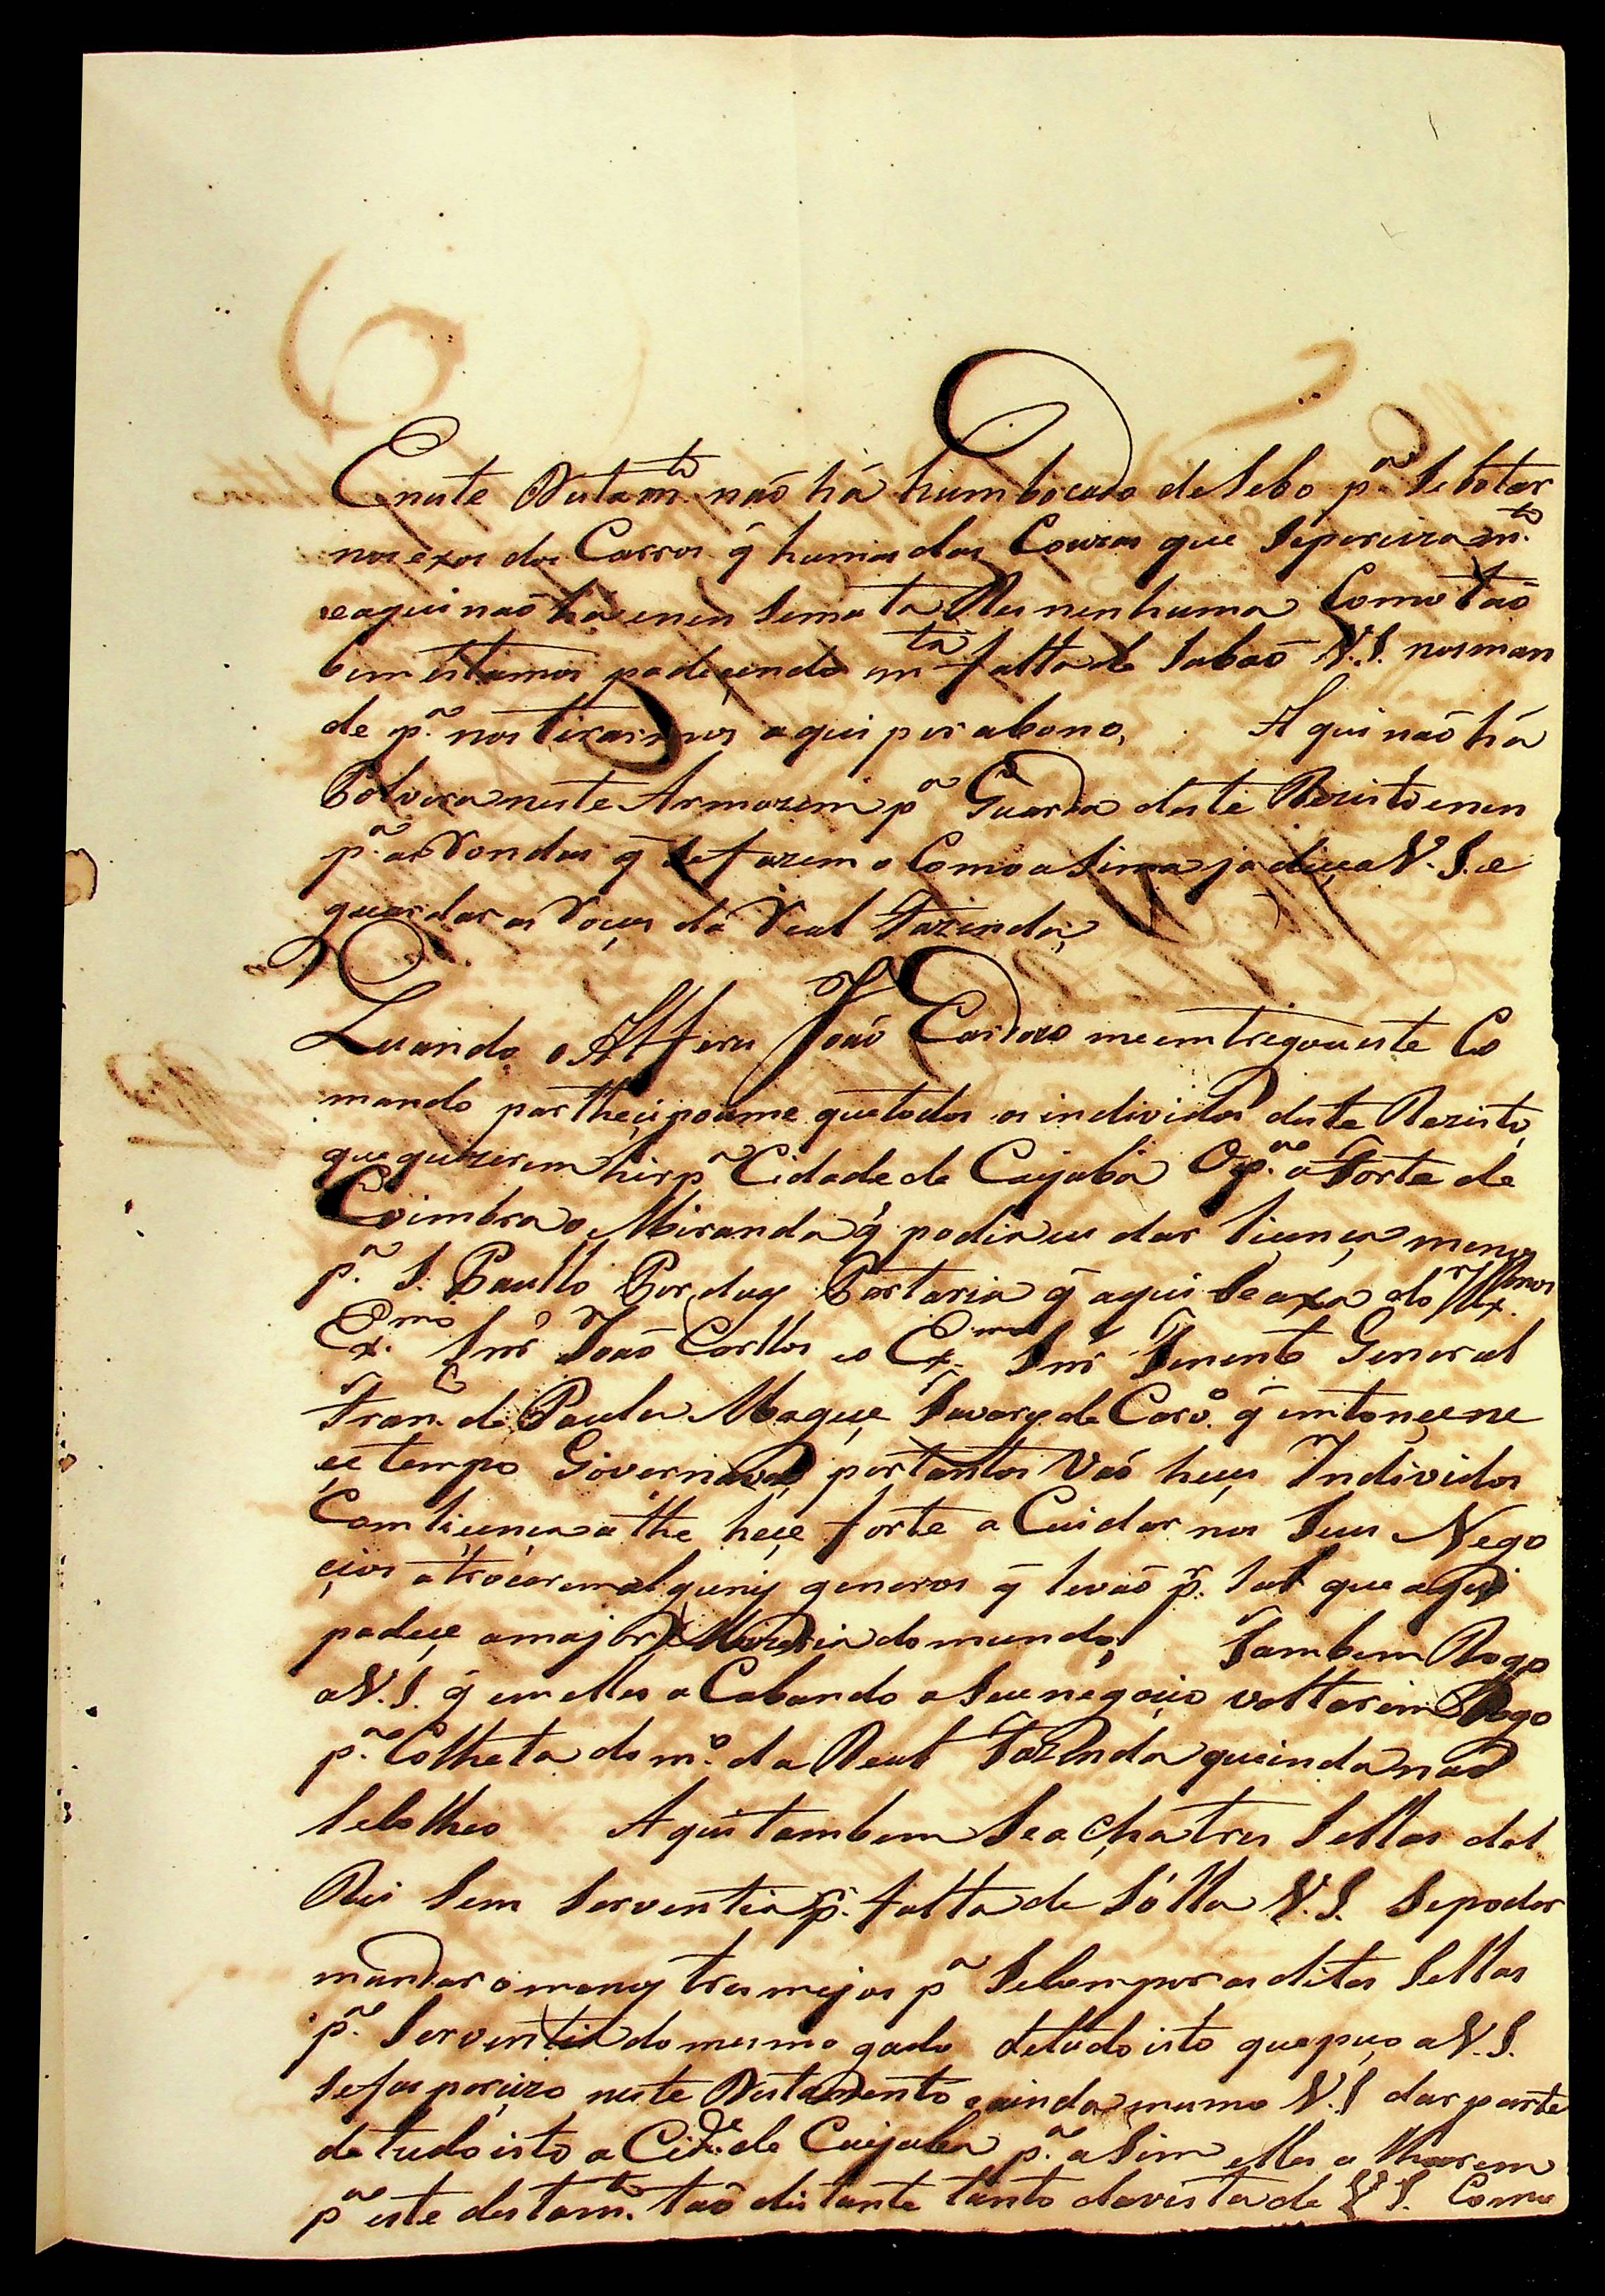 Eneste Destam.to naõ há hum bocado de Sebo p.a Se botar
nos exos dos Carros q̃ huma das Couzas que Sepreciza m.to
e aqui naõ há enen Semata Res nenhuma Como taõ
bem estamos padecendo m.ta falta de Sabaõ V.S. nos man
de p.a nos tirarmos aqui por abono, Aqui naõ há
Polvora neste Armazem p.a Guarda deste Rezisto enen
p.a as Rondas q̃ Se fazem o Como asima ja diçe a V.S. e
guardar as Roças da Real Fazenda,
Quando o Alferes Joaõ Cardozo me emtregou este Co
mando partheçipoume que todos os individos deste Rezisto,
que quizerem hir p.a Cidade de Cuyabá O p.a o Forte de
Coimbra o Miranda q̃ podia eu dar licença menos
p.a S. Paullo Por duas Portaria q̃ aqui Se axa do Ill.mos
Ex.mo Snr̃ Joaõ Carllos e o Ex.mo Snr̃ Tenente General
Fran. de Paula Mageçe Tavares de Carv.o q̃ emtonçe ne
çe tempo Governava, portantos Vaõ heçes Individos
Com liçença athe heçe forte a Cuidar nos Seus Nego
çios atrocarem alguns generos q̃ levaõ p.r Sal que aqui
padeçe a major Mizeria do mundo, Tambem Rogo
a V.S. q̃ em elles a Cabando a Seu negoçio voltarem Logo
p.a Colheta do m.o da Real Fazenda que inda naõ
Se colheo Aqui tambem Se a cha tres Sellas del
Rei Sem Serventia p.r falta de Sólla V.S. Se poder
mandar o menos tres mejos p.a Se Compor as ditas Sellas
p.a Serventia do mesmo gado detudo isto que peço a V.S.
Se fas perçizo neste Destamento e ainda mesmo V.S. dar parte
de tudo isto a Cid.e de Cuyaba p.a a Sim elles o lharem
p.a este destam.to taõ distante tanto da vista de V.S. Como